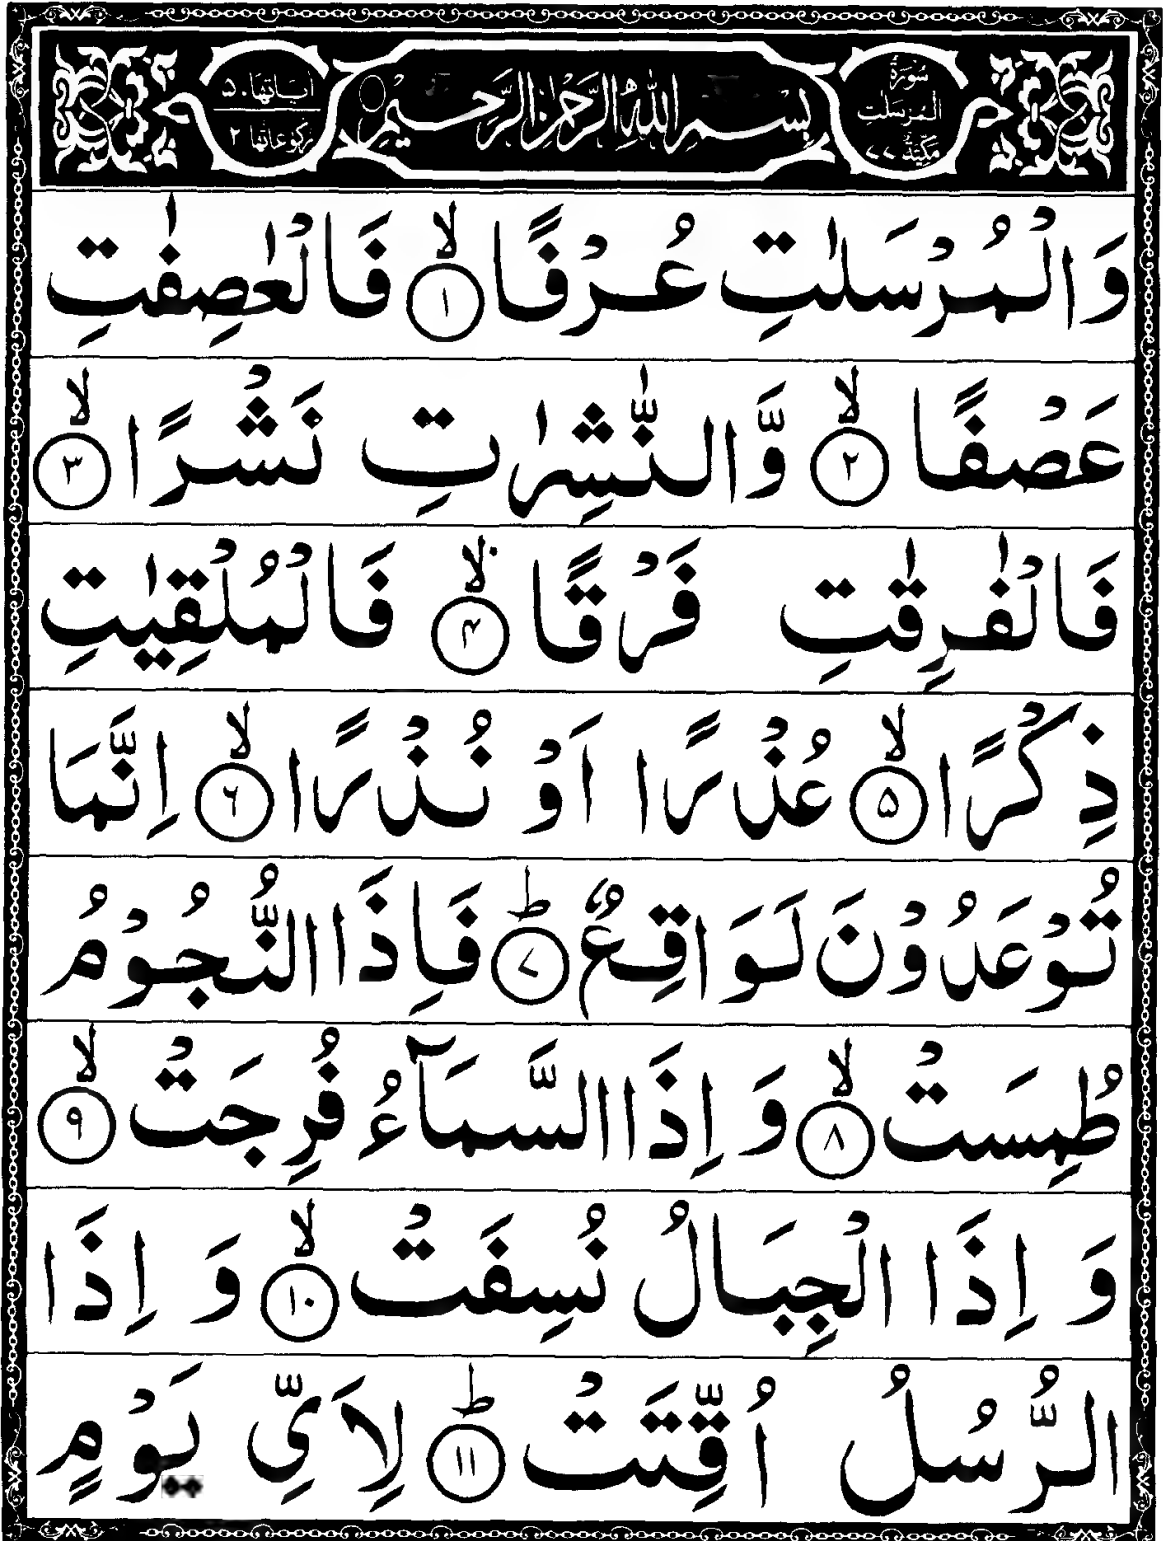 سُورَةُ الْمُرْسَلٰتِ مَكِّيَّةٌ ٧٧
بِسْمِ اللّٰهِ الرَّحْمٰنِ الرَّحِيْمِ
اٰيَاتُهَا ٥٠
رُكُوْعَاتُهَا ٢
وَالْمُرْسَلٰتِ عُرْفًا ۙ﴿۱﴾ فَالْعٰصِفٰتِ
عَصْفًا ۙ﴿۲﴾ وَّالنّٰشِرٰتِ نَشْرًا ۙ﴿۳﴾
فَالْفٰرِقٰتِ فَرْقًا ۙ﴿۴﴾ فَالْمُلْقِيٰتِ
ذِكْرًا ۙ﴿۵﴾ عُذْرًا اَوْ نُذْرًا ۙ﴿۶﴾ اِنَّمَا
تُوْعَدُوْنَ لَوَاقِعٌ ؕ﴿۷﴾ فَاِذَا النُّجُوْمُ
طُمِسَتْ ۙ﴿۸﴾ وَ اِذَا السَّمَآءُ فُرِجَتْ ۙ﴿۹﴾
وَ اِذَا الْجِبَالُ نُسِفَتْ ۙ﴿۱۰﴾ وَ اِذَا
الرُّسُلُ اُقِّتَتْ ؕ﴿۱۱﴾ لِاَيِّ يَوْمٍ